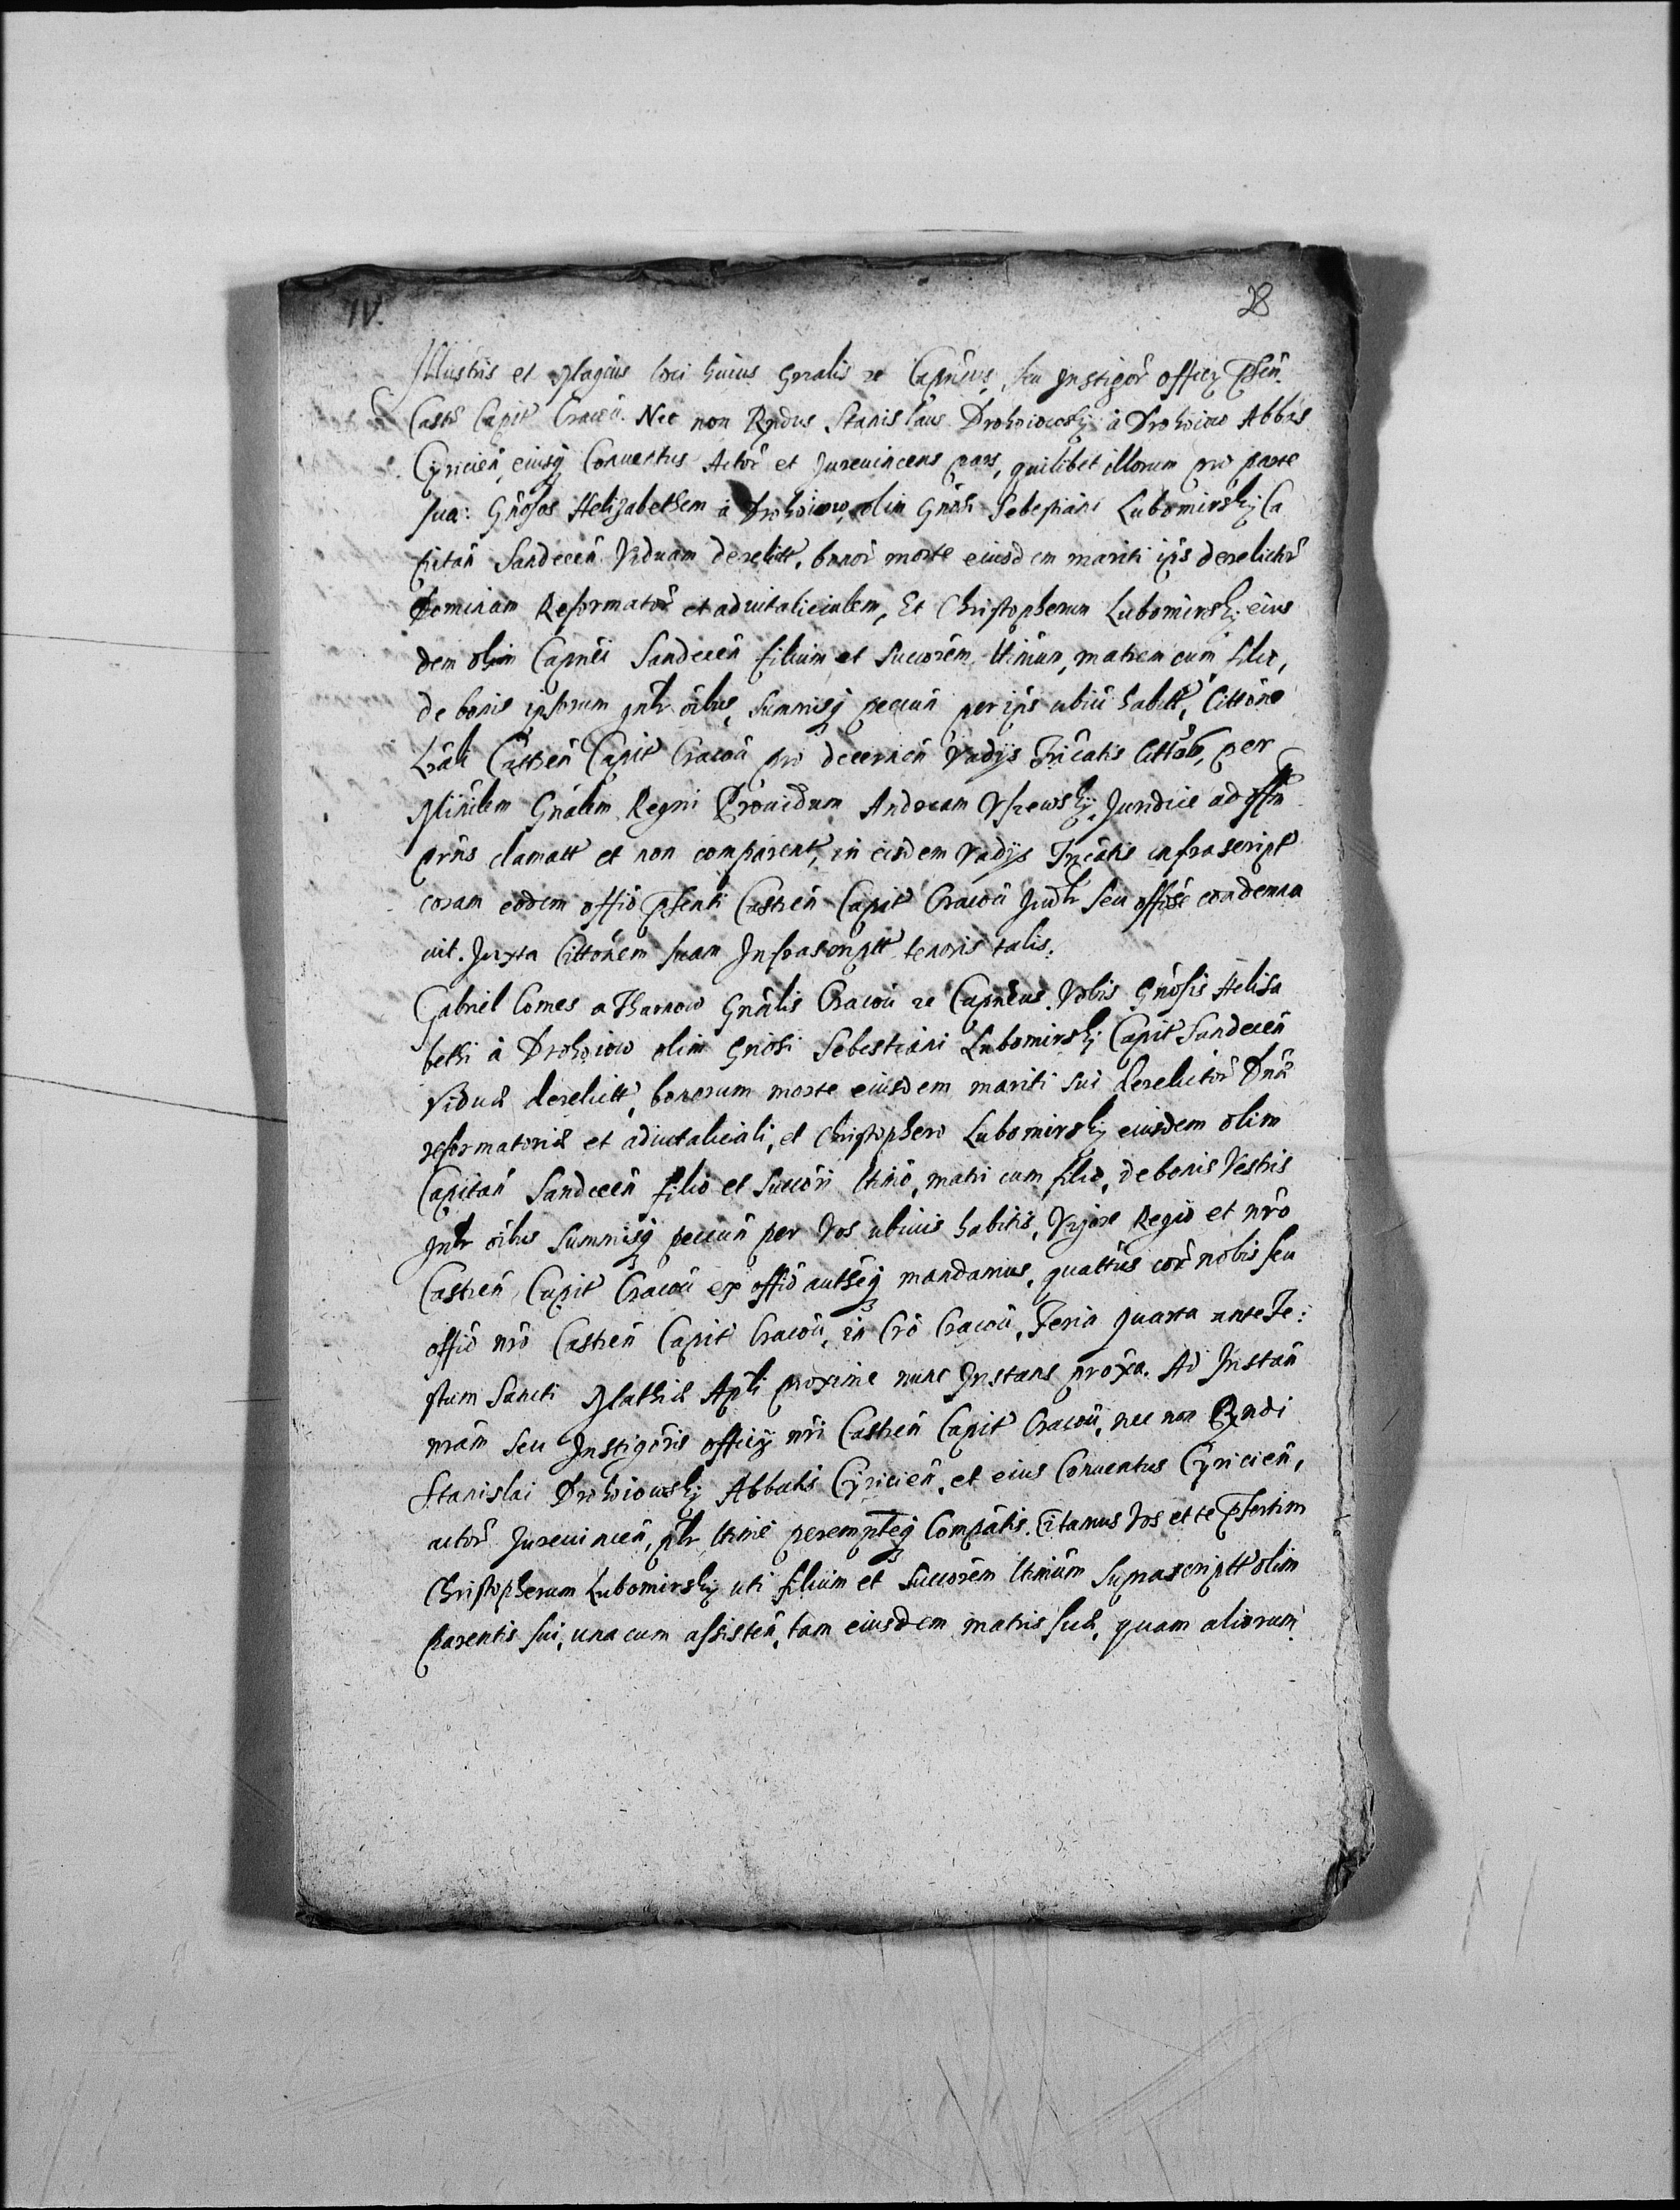 IV.
28
Illustris et Magcus loci huius Gnralis re Capneus, seu Instigor officy pñtis
Castr Capit Cracoñ. Nec non Rndus Stanislaus Drohoiowsky à Drohoiow Abbas
Cyricień, eiusq Conuentus Actor et Jureuincens pars, quilibet illorum pro parte
sua: Gñosos Helizabethem à Drohoiow, olim Gñosi Sebestiani Lubomirsky Ca
pitań Sandeceń Viduam derelictt, bonor morte eiusdem mariti ips derelictor
Dominam Reformator et aduitalicialem, Et Christopherum Lubomirsky eius
dem olim Capnei Sandeceń filium et Succorem ltimum, matrem cum filio,
de bonis ipsorum gnlr oibus, summisq pecuń per ips ubiuis habitt, Cittone
Lrali Castreń Capit Cracoń pro decerneń Vadys Tricatis Cittos, per
Minrlem Gnalem Regni Prouidum Andream Vszewsky, Juridice ad offm
prns clamatt et non comparent, in eisdem Vadys Tricatis infrascript
coram eodem offio psenti Castreń Capit Cracoń Judlr seu offose condemna
uit. Juxta Cittonem suam Infrascriptt tenoris talis.
Gabriel Comes a Tharnow Gnrlis Cracoń re Capneus. Vobis Gñosis Helisa
bethi à Drohoiow olim Gñosi Sebestiani Lubomirsky Capit Sandeceń
Viduæ derelictt, bonorum morte eiusdem mariti sui derelictor Dnæ
reformatoriæ et aduitaliciali, et Christophero Lubomirsky eiusdem olim
Capitań Sandeceń filio et Succori ltimo, matri cum filio, de bonis Vestris
gnlr oibus Summisq pecuń per Vos ubiuis habitis, Vigore Regio et nro
Castreń Capit Cracoń ex offio authteq mandamus, quattus cor nobis seu
offio nro Castreń Capit Cracoń, in Cro Cracoń, Feria quarta ante Fe:
stum Sancti Mathiæ Apli proxime nunc Instans proxa. Ad Instań
nram seu Instigoris officy nri Castreń Capit Cracoń, nec non Rndi
Stanislai Drohoiowsky Abbatis Cyricień, et eius Conuentus Cyricień,
actor Jureuinceń, plr ltime perempteq Compatis. Citamus Vos et te psertim
Christopherum Lubomirsky uti filium et Succorem ltimum Suprascriptt olim
parentis sui, una cum assisteń, tam eiusdem matris suæ, quam aliorum